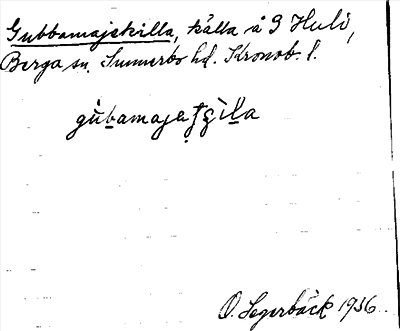 Gubbamajekilla, källa å 9 Huli,
Berga sn. Sunnerbo hd. Kronob. l.
O. Segerbäck 1936